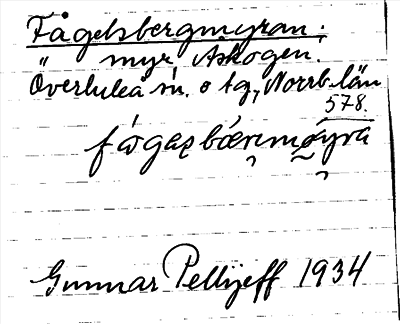 Fågelsbergmyran:
" myr, Askogen.
Överluleå sn. o tg, Norrb. län
578.
Gunnar Pellijeff 1934